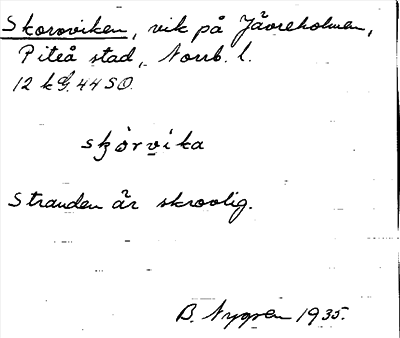 Skorvviken, vik på Jävreholmen,
Piteå stad, Norrb. l.
12 kg. 44 SO.
skòrvika
Stranden är skrovlig.
B. Nygren 1935.